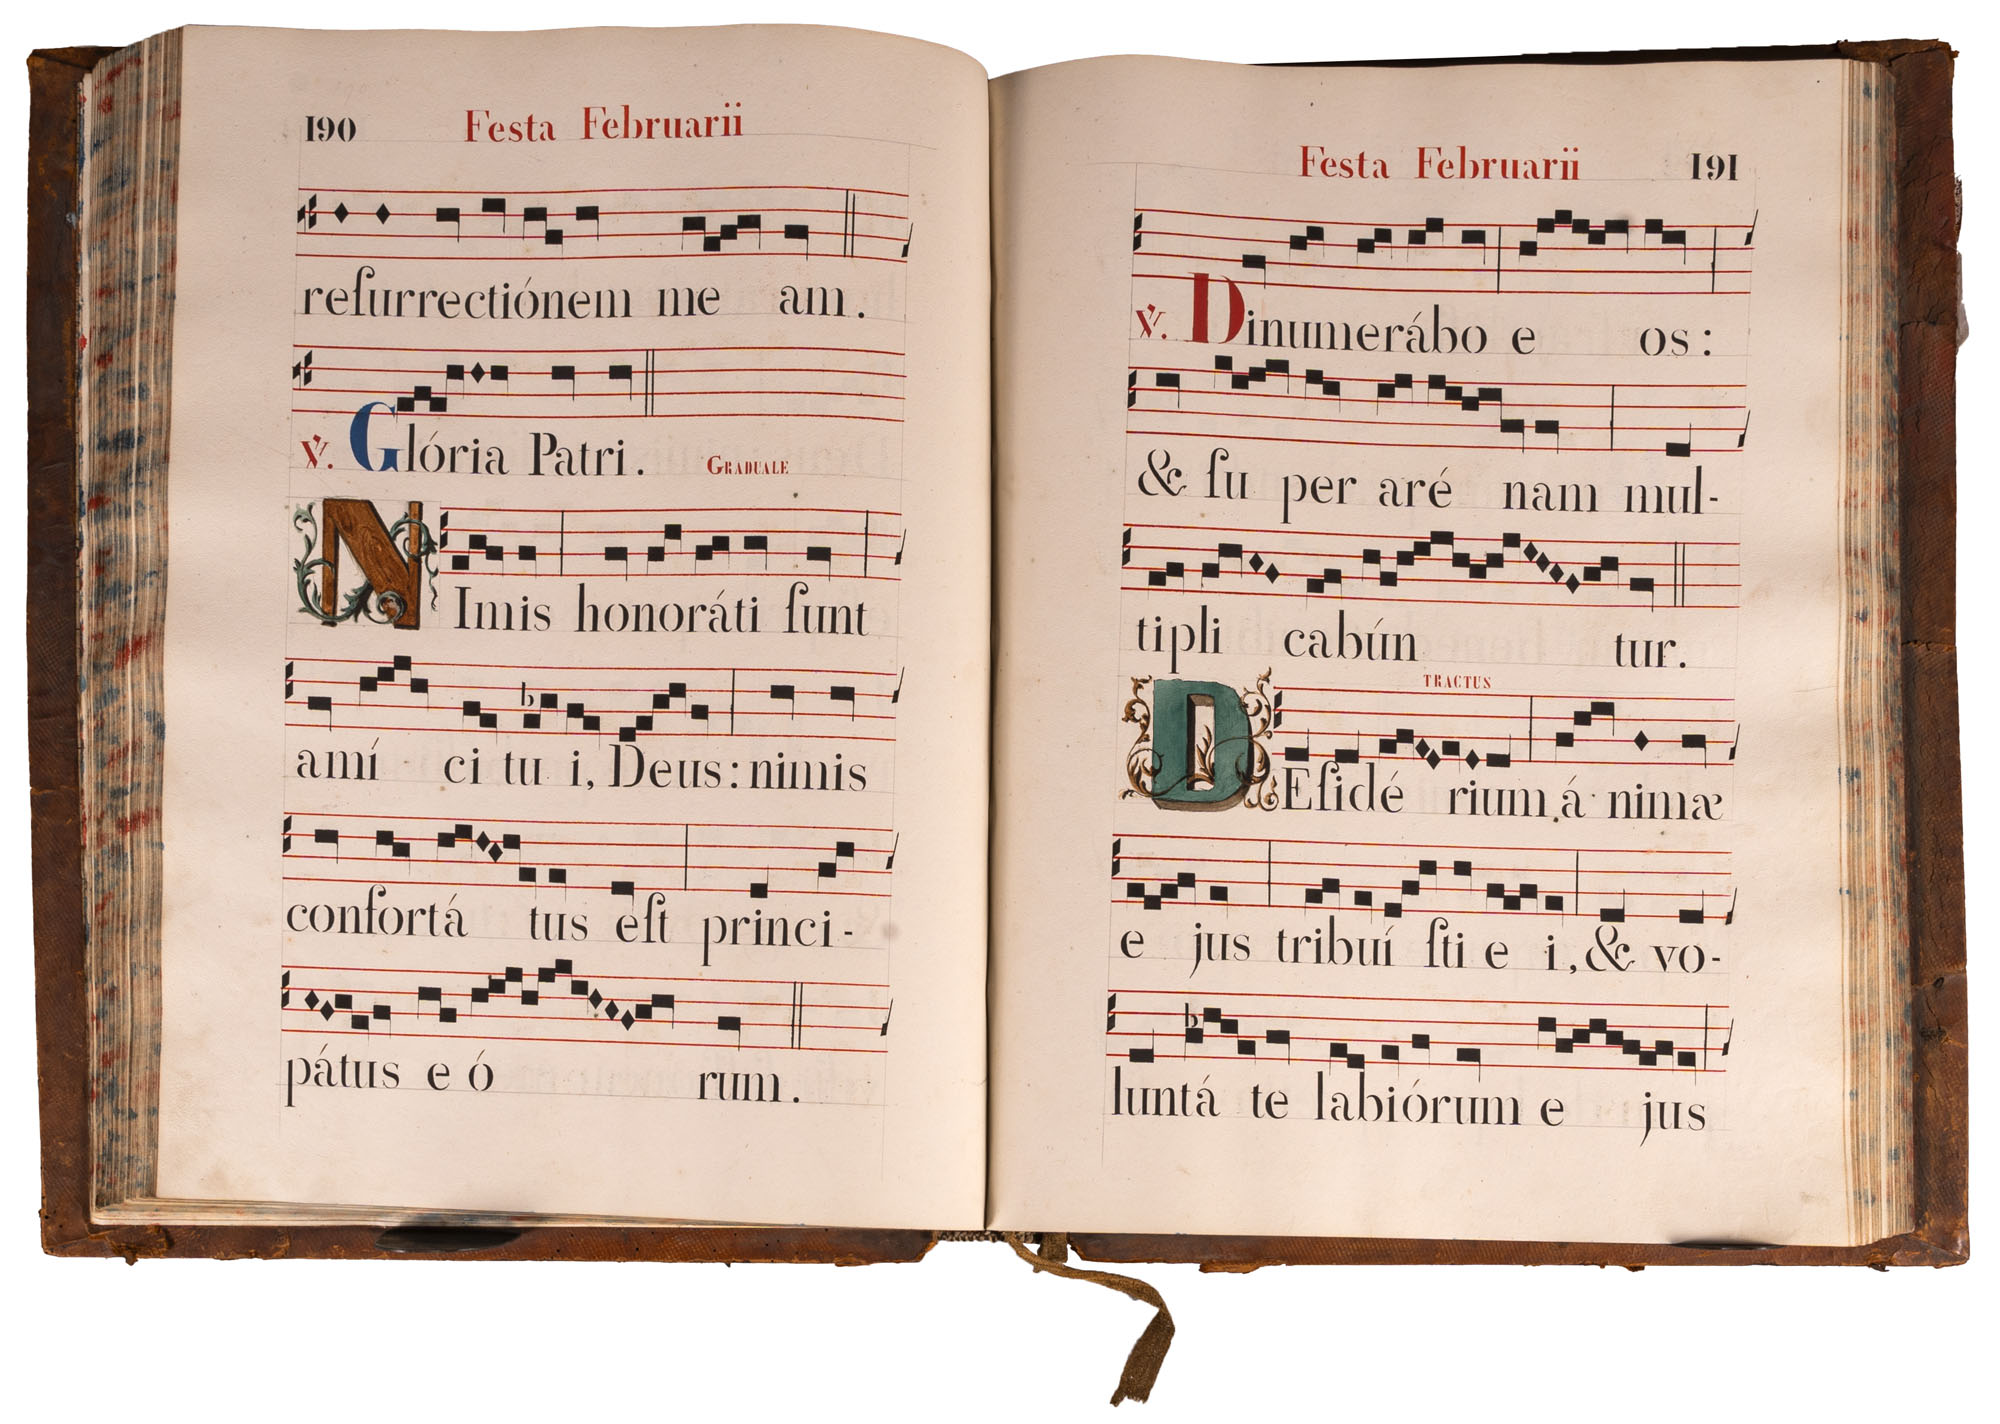 190 Festa Februarii
reſurrectiónem me am.
℣. Glória Patri. GRADUALE
NImis honoráti ſunt
amí ci tu i, Deus: nimis
confortá tus eſt princi-
pátus e ó rum.
Festa Februarii 191
℣. Dinumerábo e os:
& ſu per aré nam mul-
tipli cabún tur.
TRACTUS
DEſidé rium á nimæ
e jus tribuí ſti e i, & vo-
luntá te labiórum e jus